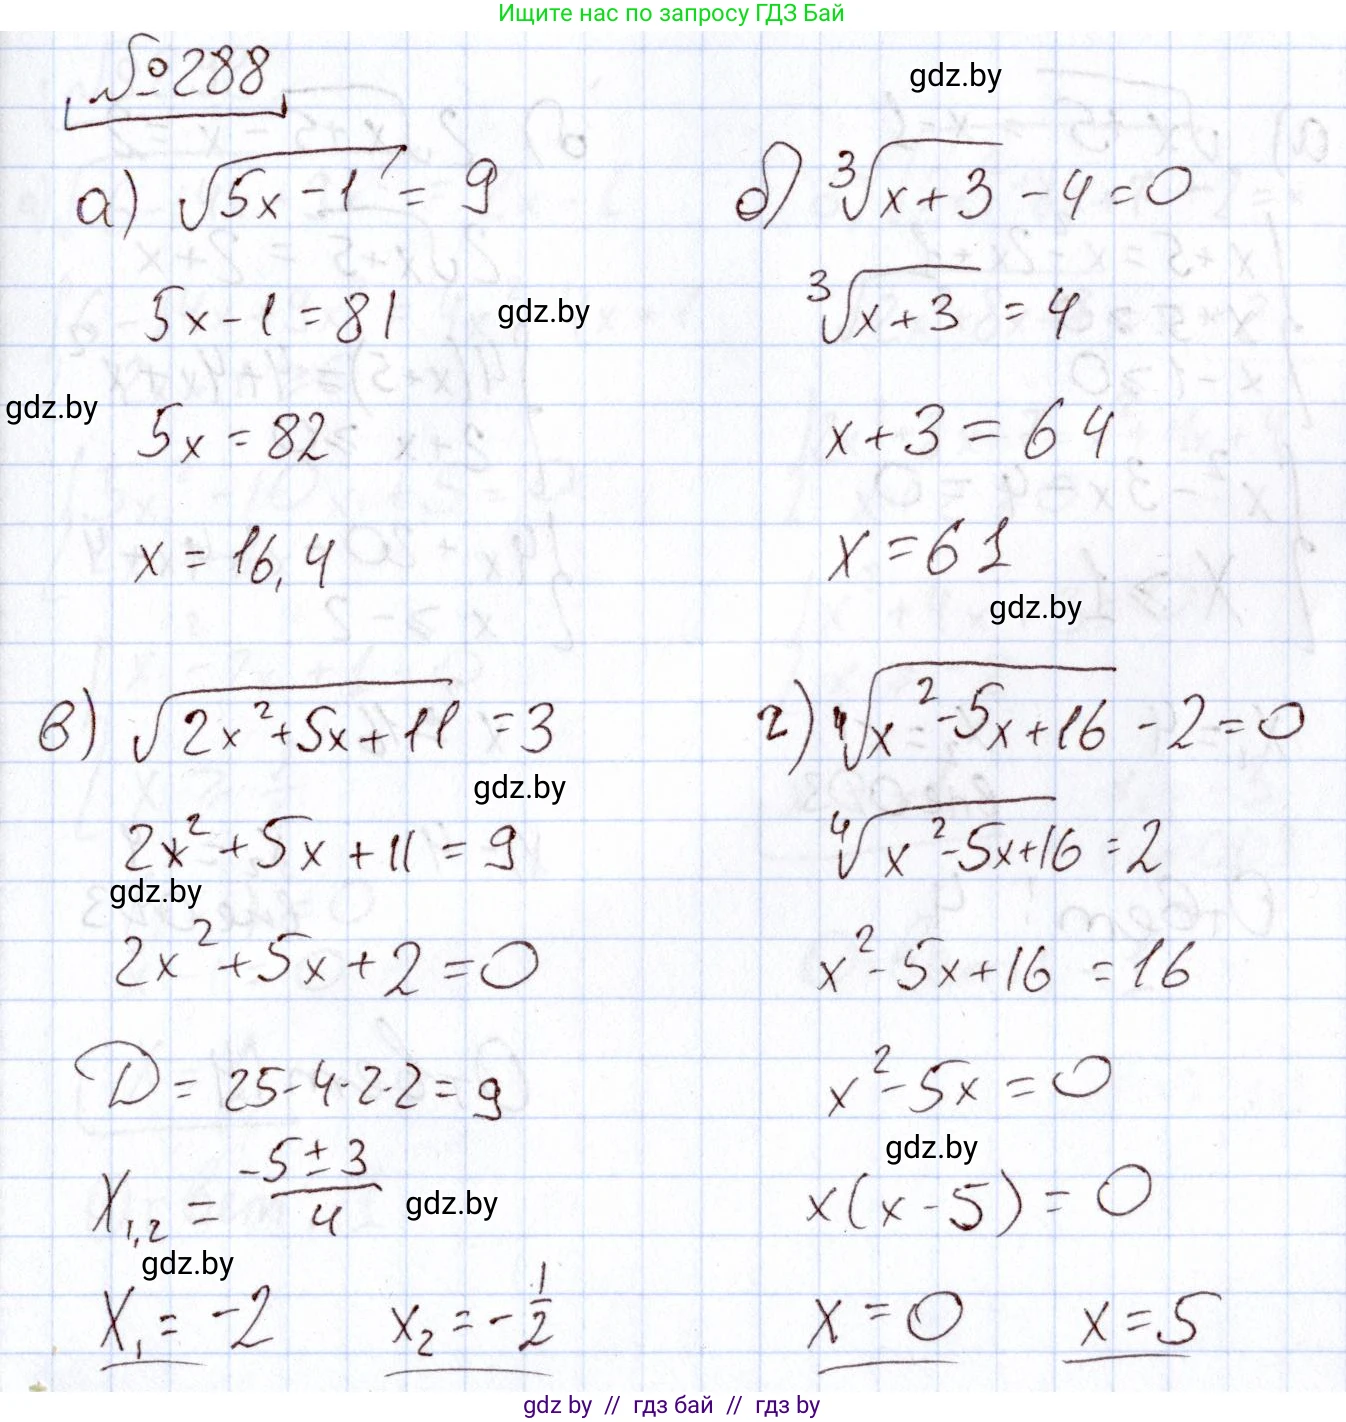 Ищите нас по запросу ГДЗ Бай
№288
gdz.by
а) √(5x-1) = 9
5x-1=81
gdz.by
gdz.by
5x=82
x = 16,4
б) ³√(x+3) -4=0
³√(x+3) = 4
x+3=64
x=61
gdz.by
в) √(2x²+5x+11) =3
gdz.by
2x²+5x+11=9
gdz.by
2x²+5x+2=0
D=25-4·2·2=9
x₁,₂ = (-5±3)/4
gdz.by
gdz.by
x₁=-2 x₂=-1/2
г) ⁴√(x²-5x+16) -2=0
⁴√(x²-5x+16) =2
x²-5x+16 =16
x²-5x=0
gdz.by
x(x-5)=0
x=0 x=5
gdz.by // гдз бай // гдз by